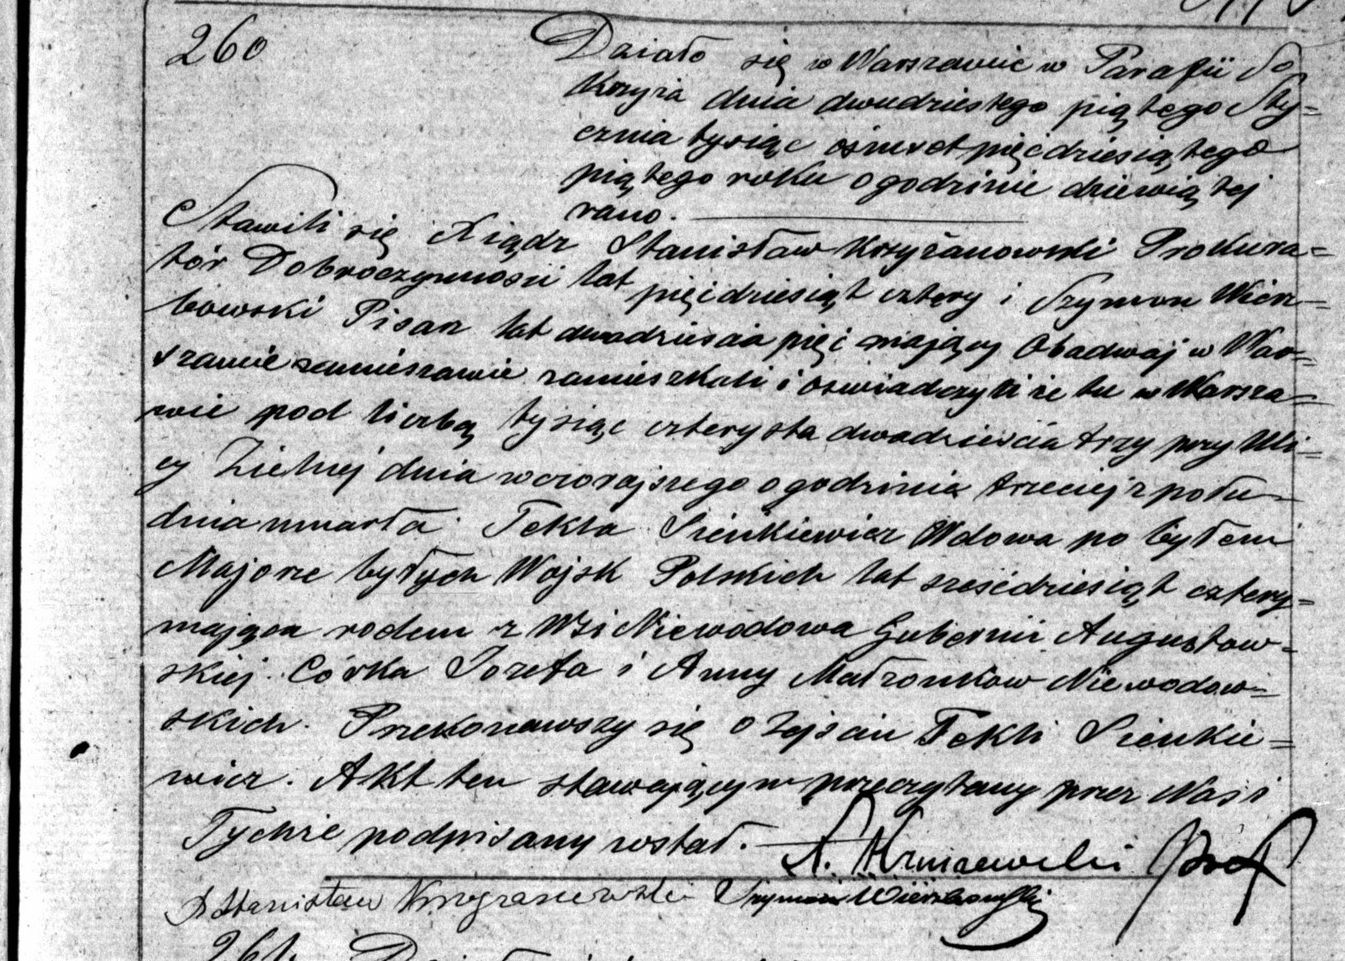 260
Działo się w Warszawie w Parafii So
Krzyża dnia dwudziestego piątego Sty=
cznia tysiąc ośmset pięcdziesiątego
piątego roku o godzinie dziewiątej
rano.
Stawili się Xiądz Stanisław Krzyżanowski Prokura=
tór Dobroczynnosci lat pięcdziesiąt cztery i Szymon Wierz=
bowski Pisarz lat dwadziescia pięć mający Obadwaj w War=
szawie zamieszkali i oswiadczyli ze tu w Warsza=
wie pod liczbą tysiąc czterysta dwadzieścia trzy przy Uli=
cy Zielnej dnia wczorajszego o godzinie trzeciej z połu=
dnia umarła Tekla Sienkiewicz Wdowa po byłem
Majorze byłych Wojsk Polskich lat sześcdziesiąt cztery=
mająca rodem z Wsi Niewodowa Gubernii Augustow=
skiej. Córka Jozefa i Anny Małzonków Niewodow=
skich. Przekonawszy się o Zejsciu Tekli Sienkie=
wicz. Akt ten stawającym przeczytany przez Nas i
Tychze podpisany został.
X Stanisław Krzyzanowski Szymon Wierzbowski
261